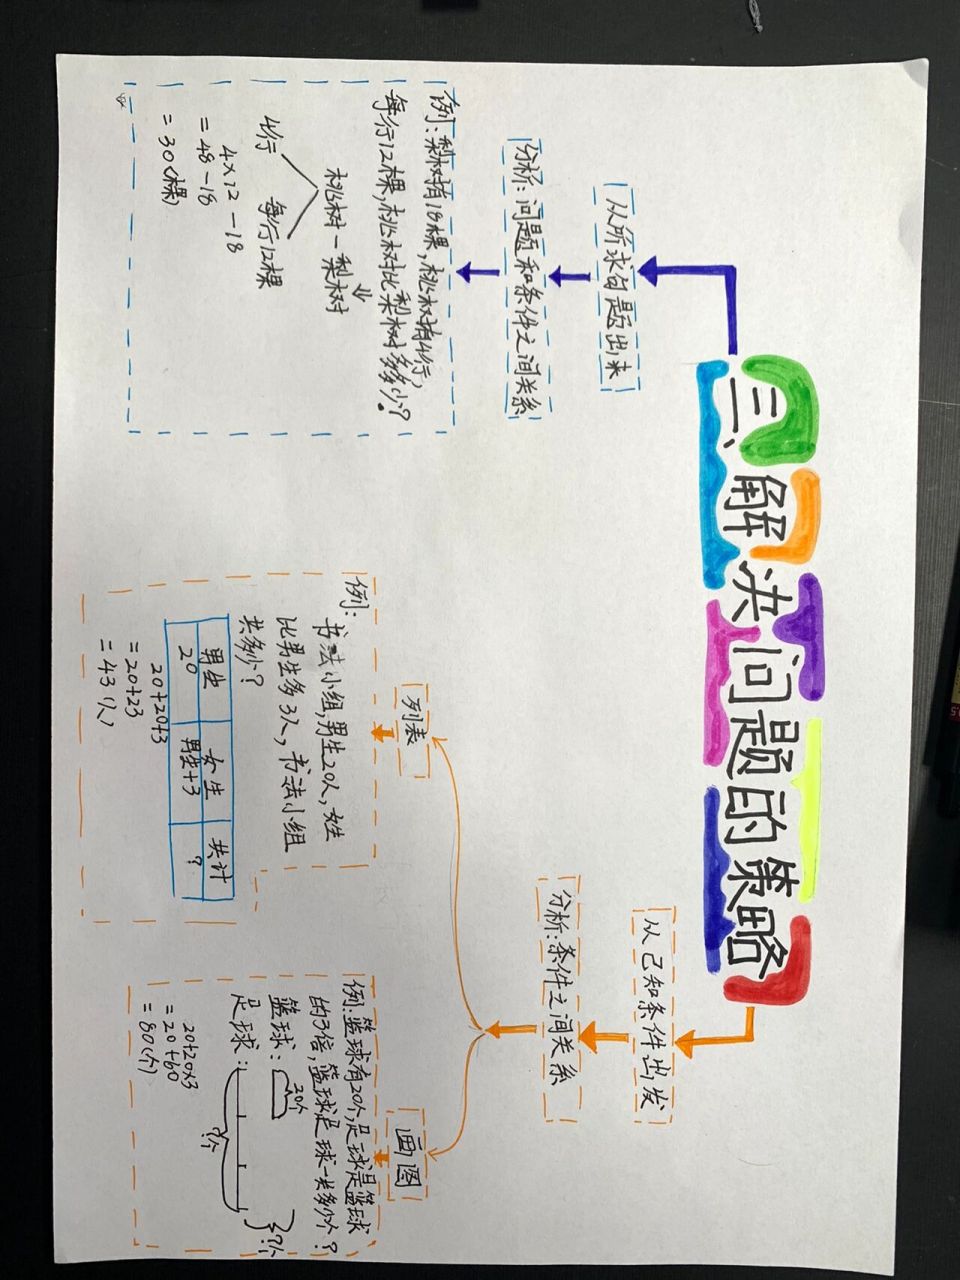 三、解决问题的策略
从所求句题出来
分析：问题和条件之间关系
例：梨树有18棵，桃树有4行，
每行12棵，桃树比梨树多多少？
桃树－梨树
4行 每行12棵
4×12－18
＝48－18
＝30(棵)
从已知条件出发
分析：条件之间关系
列表
例：书法小组，男生20人，女生
比男生多3人，书法小组
共多少？
男生 女生 共计
20 男生+3 ？
20+20+3
＝20+23
＝43(人)
画图
例：篮球有20个，足球是篮球
的3倍，篮球足球一共多少个？
20个
篮球：
足球：
?个
?个
20+20×3
＝20+60
＝80(个)